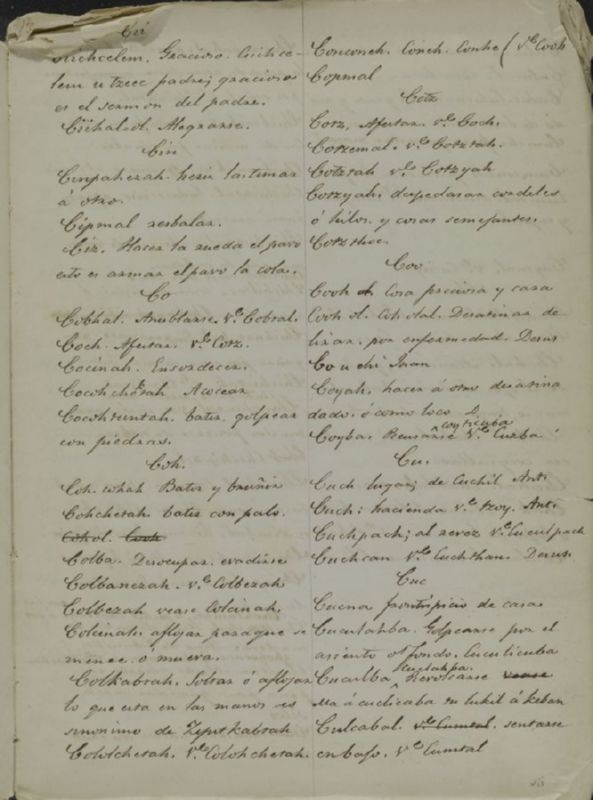 Cii
Gracioso. Ciihce-
lem u tzeec padre; gracioso
es el sermon del padre.
Ciihal. ol. Alegrarse.
Cin
Cinpahezah. herir lastimar
á otro.
Cipmal resbalar.
Ciz. Hacer la rueda el pavo
esto es armar el pavo la cola.
Co
Cobhal. Anublarse. Vᵉ Cobral.
Coch. Afertar. Vᵉ Cotz.
Cocinah. Ensordecer.
Cocohchetah Acocear
Cocohtuntah. batir, golpear
con piedras.
Coh.
Coh. Batir y bruñir
Cohchetah bater con palo.
Cohol. Cooh
Colba. Desocupar. evadirse
Colbanezah. Vᵉ Colbezah
Colbezah vease Colcinah.
Colcinah. aflojar para que se
menee. ó mueva.
Colkabtah. Sobrar ó aflojar
lo que esta en las manos es
sinonimo de Ziputkabtah
Colohchetah. Vᵉ Colohchetah.
Conconch. Conch. Conhe (Vᵉ Cooh
Copmal
Cotz
Cotz, Afertar. Vᵉ Coch.
Cotzemal. Vᵉ Cotztah.
Cotztah Vᵉ Cotzyah
Cotzyah. despedasar cordeles
ó hilos. y cosas semejantes.
Cotzthoc.
Coo
Cooh Cosa preciosa y cara
Cooh ol. Coh olal. Desatinar de-
lirar. por enfermedad. Desus
Co u chi Juan
Coyah, hacer á otro desatina
dado. ó como loco
Coyba. Reusarse Vᵉ Cuzba
Cu.
Cuch lugar; de Cuchil Ant.
Cuch; hacienda Vᵉ tzoy. Ant.
Cuchpach; al revez Vᵉ Cuculpach
Cuchcan Vᵉ Cuchthan. Desus
Cuc
Cucna frontispicio de casa.
Cuculahba. Golpearse por el
asiento ó fondo. Cuculicuba
Cuculba Revolcarse vease
Culcabal. Vᵉ Cumtal. sentarse
en bajo. Vᵉ Cumtal